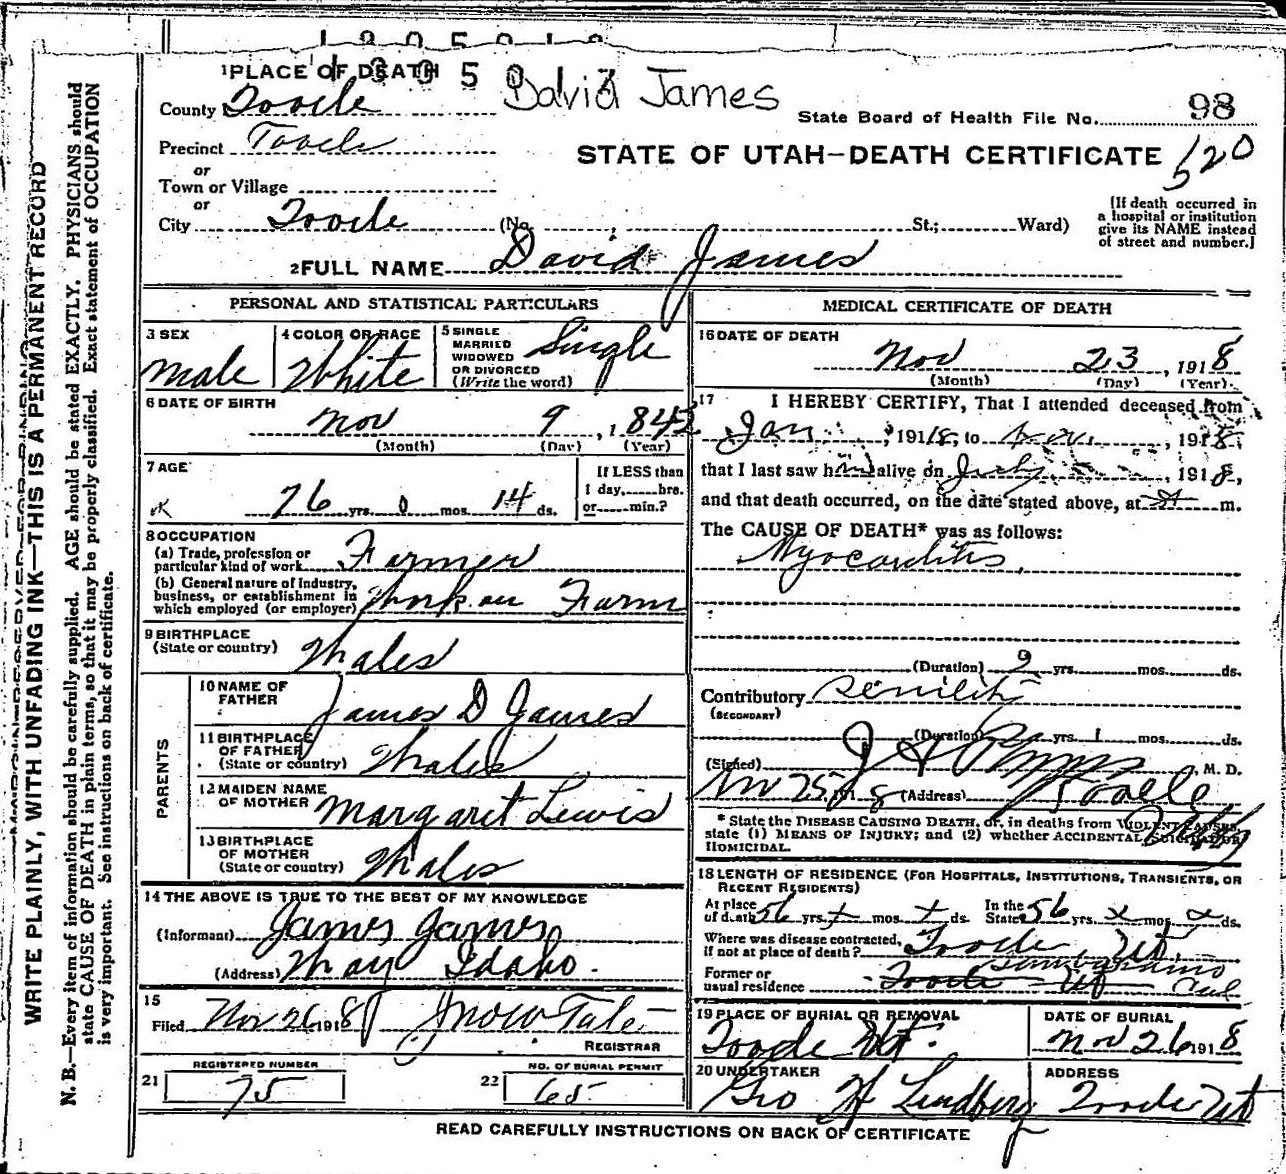 1 PLACE OF DEATH
David James
County Tooele
State Board of Health File No. 98
Precinct Tooele
STATE OF UTAH—DEATH CERTIFICATE 520
or
Town or Village
or
City Tooele (No. ; St.; Ward)
[If death occurred in
a hospital or institution
give its NAME instead
of street and number.]
2 FULL NAME David James
PERSONAL AND STATISTICAL PARTICULARS
3 SEX
Male
4 COLOR OR RACE
White
5 SINGLE
MARRIED
WIDOWED
OR DIVORCED
(Write the word)
Single
6 DATE OF BIRTH
Nov 9, 1842
(Month) (Day) (Year)
7 AGE
76 yrs. 0 mos. 14 ds.
If LESS than
1 day, hrs.
or min.?
8 OCCUPATION
(a) Trade, profession or
particular kind of work Farmer
(b) General nature of industry,
business, or establishment in
which employed (or employer) Work on Farm
9 BIRTHPLACE
(State or country) Wales
PARENTS
10 NAME OF
FATHER James D James
11 BIRTHPLACE
OF FATHER
(State or country) Wales
12 MAIDEN NAME
OF MOTHER Margaret Lewis
13 BIRTHPLACE
OF MOTHER
(State or country) Wales
14 THE ABOVE IS TRUE TO THE BEST OF MY KNOWLEDGE
(Informant) James James
(Address) May Idaho.
15
Filed Nov 26 1918
REGISTRAR
REGISTERED NUMBER
21 75
NO. OF BURIAL PERMIT
22 65
MEDICAL CERTIFICATE OF DEATH
16 DATE OF DEATH
Nov 23, 1918
(Month) (Day) (Year)
17 I HEREBY CERTIFY, That I attended deceased from
Jan, 1918, to Nov., 1918,
that I last saw him alive on July, 1918,
and that death occurred, on the date stated above, at m.
The CAUSE OF DEATH* was as follows:
Myocarditis.
(Duration) 2 yrs. mos. ds.
Contributory Senility
(SECONDARY)
(Duration) yrs. 1 mos. ds.
(Signed) J A Phipps, M. D.
Nov 25, 1918 (Address) Tooele
Utah
* State the DISEASE CAUSING DEATH, or, in deaths from VIOLENT CAUSES,
state (1) MEANS OF INJURY; and (2) whether ACCIDENTAL, SUICIDAL OR
HOMICIDAL.
18 LENGTH OF RESIDENCE (FOR HOSPITALS, INSTITUTIONS, TRANSIENTS, OR
RECENT RESIDENTS)
At place In the
of death 56 yrs. mos. ds. State 56 yrs. x mos. x ds.
Where was disease contracted,
if not at place of death? Tooele Ut.
Former or
usual residence Tooele Ut
19 PLACE OF BURIAL OR REMOVAL
Tooele Ut.
DATE OF BURIAL
Nov 26 1918
20 UNDERTAKER
Geo H Lindberg
ADDRESS
Tooele Ut
READ CAREFULLY INSTRUCTIONS ON BACK OF CERTIFICATE
WRITE PLAINLY, WITH UNFADING INK—THIS IS A PERMANENT RECORD
N. B.—Every item of information should be carefully supplied. AGE should be stated EXACTLY. PHYSICIANS should
state CAUSE OF DEATH in plain terms, so that it may be properly classified. Exact statement of OCCUPATION
is very important. See instructions on back of certificate.